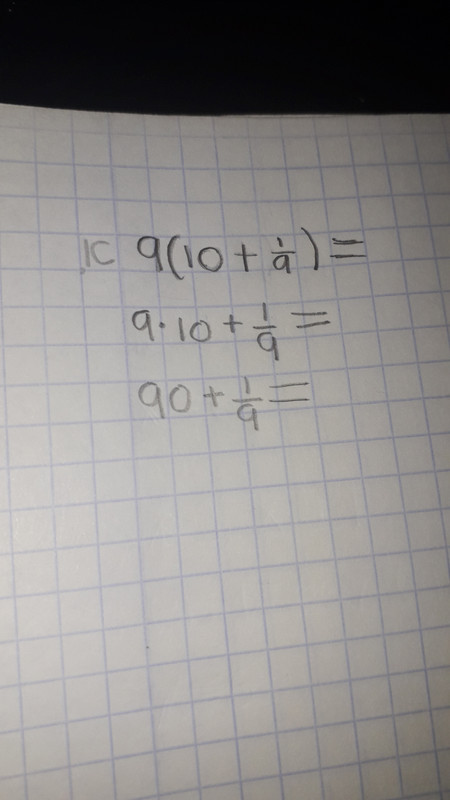 1C 9(10 + 1/9) =
9·10 + 1/9 =
90 + 1/9 =